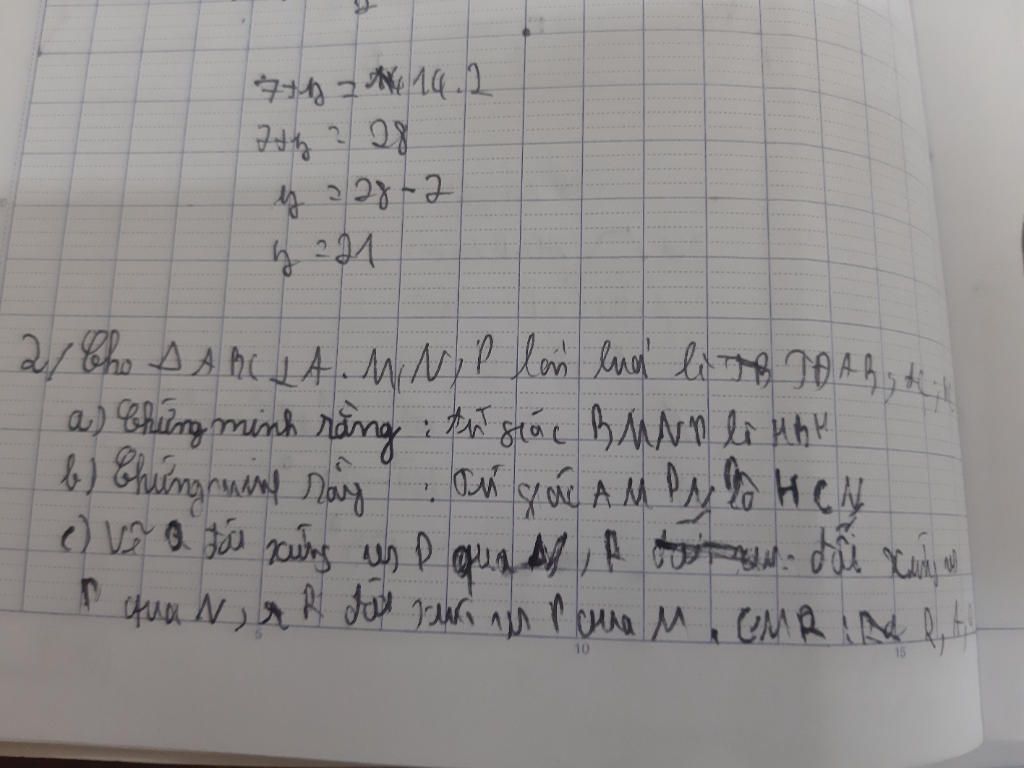 7+y = 14.2
7+y = 28
y = 28-7
y = 21
2/ Cho Δ ABC ⊥ A. M, N, P lần lượt là TĐ AB, AC,
a) Chứng minh rằng : tứ giác BMNP là HBH
b) Chứng minh rằng : Tứ giác AMPN là HCN
c) Vẽ Q đối xứng P qua N, đối xứng
P qua N, R đối xứng P qua M. CMR : R, A,
5 10 15